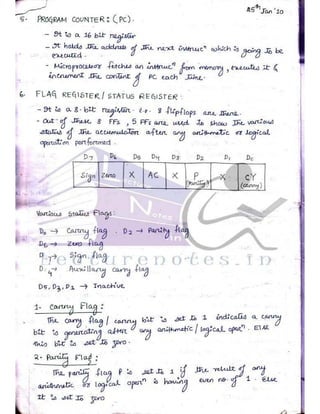 25th Jan '10
5. PROGRAM COUNTER : (PC).
- It is a 16 bit register
- It holds the address of the next instrucn which is going to be
executed.
- Microprocessor fetches an instrucn from memory, executes it &
increment the content of PC each time.
6. FLAG REGISTER / STATUS REGISTER:
- It is a 8-bit register i.e. 8 flipflops are there.
- Out of these 8 FFs, 5 FFs are used to show the various
status of the accumulator after any arithmetic or logical
operation performed.
D7 D6 D5 D4 D3 D2 D1 D0
Sign Zero X AC X P (Parity) X CY (carry)
Various Status Flags:
D0 → Carry flag. D2 → Parity flag
D6 → Zero flag
D7 → Sign flag
D4 → Auxillary carry flag
D5, D3, D1 → Inactive
Notes
in
1- Carry Flag:
The carry flag / carry bit is set to 1 indicates a carry
bit is generating after any arithmetic / logical opern. Else
this bit is set to zero.
2- Parity Flag:
The parity flag P is set to 1 if the result of any
arithmatic or logical opern is having even no of 1. Else
It is set to zero